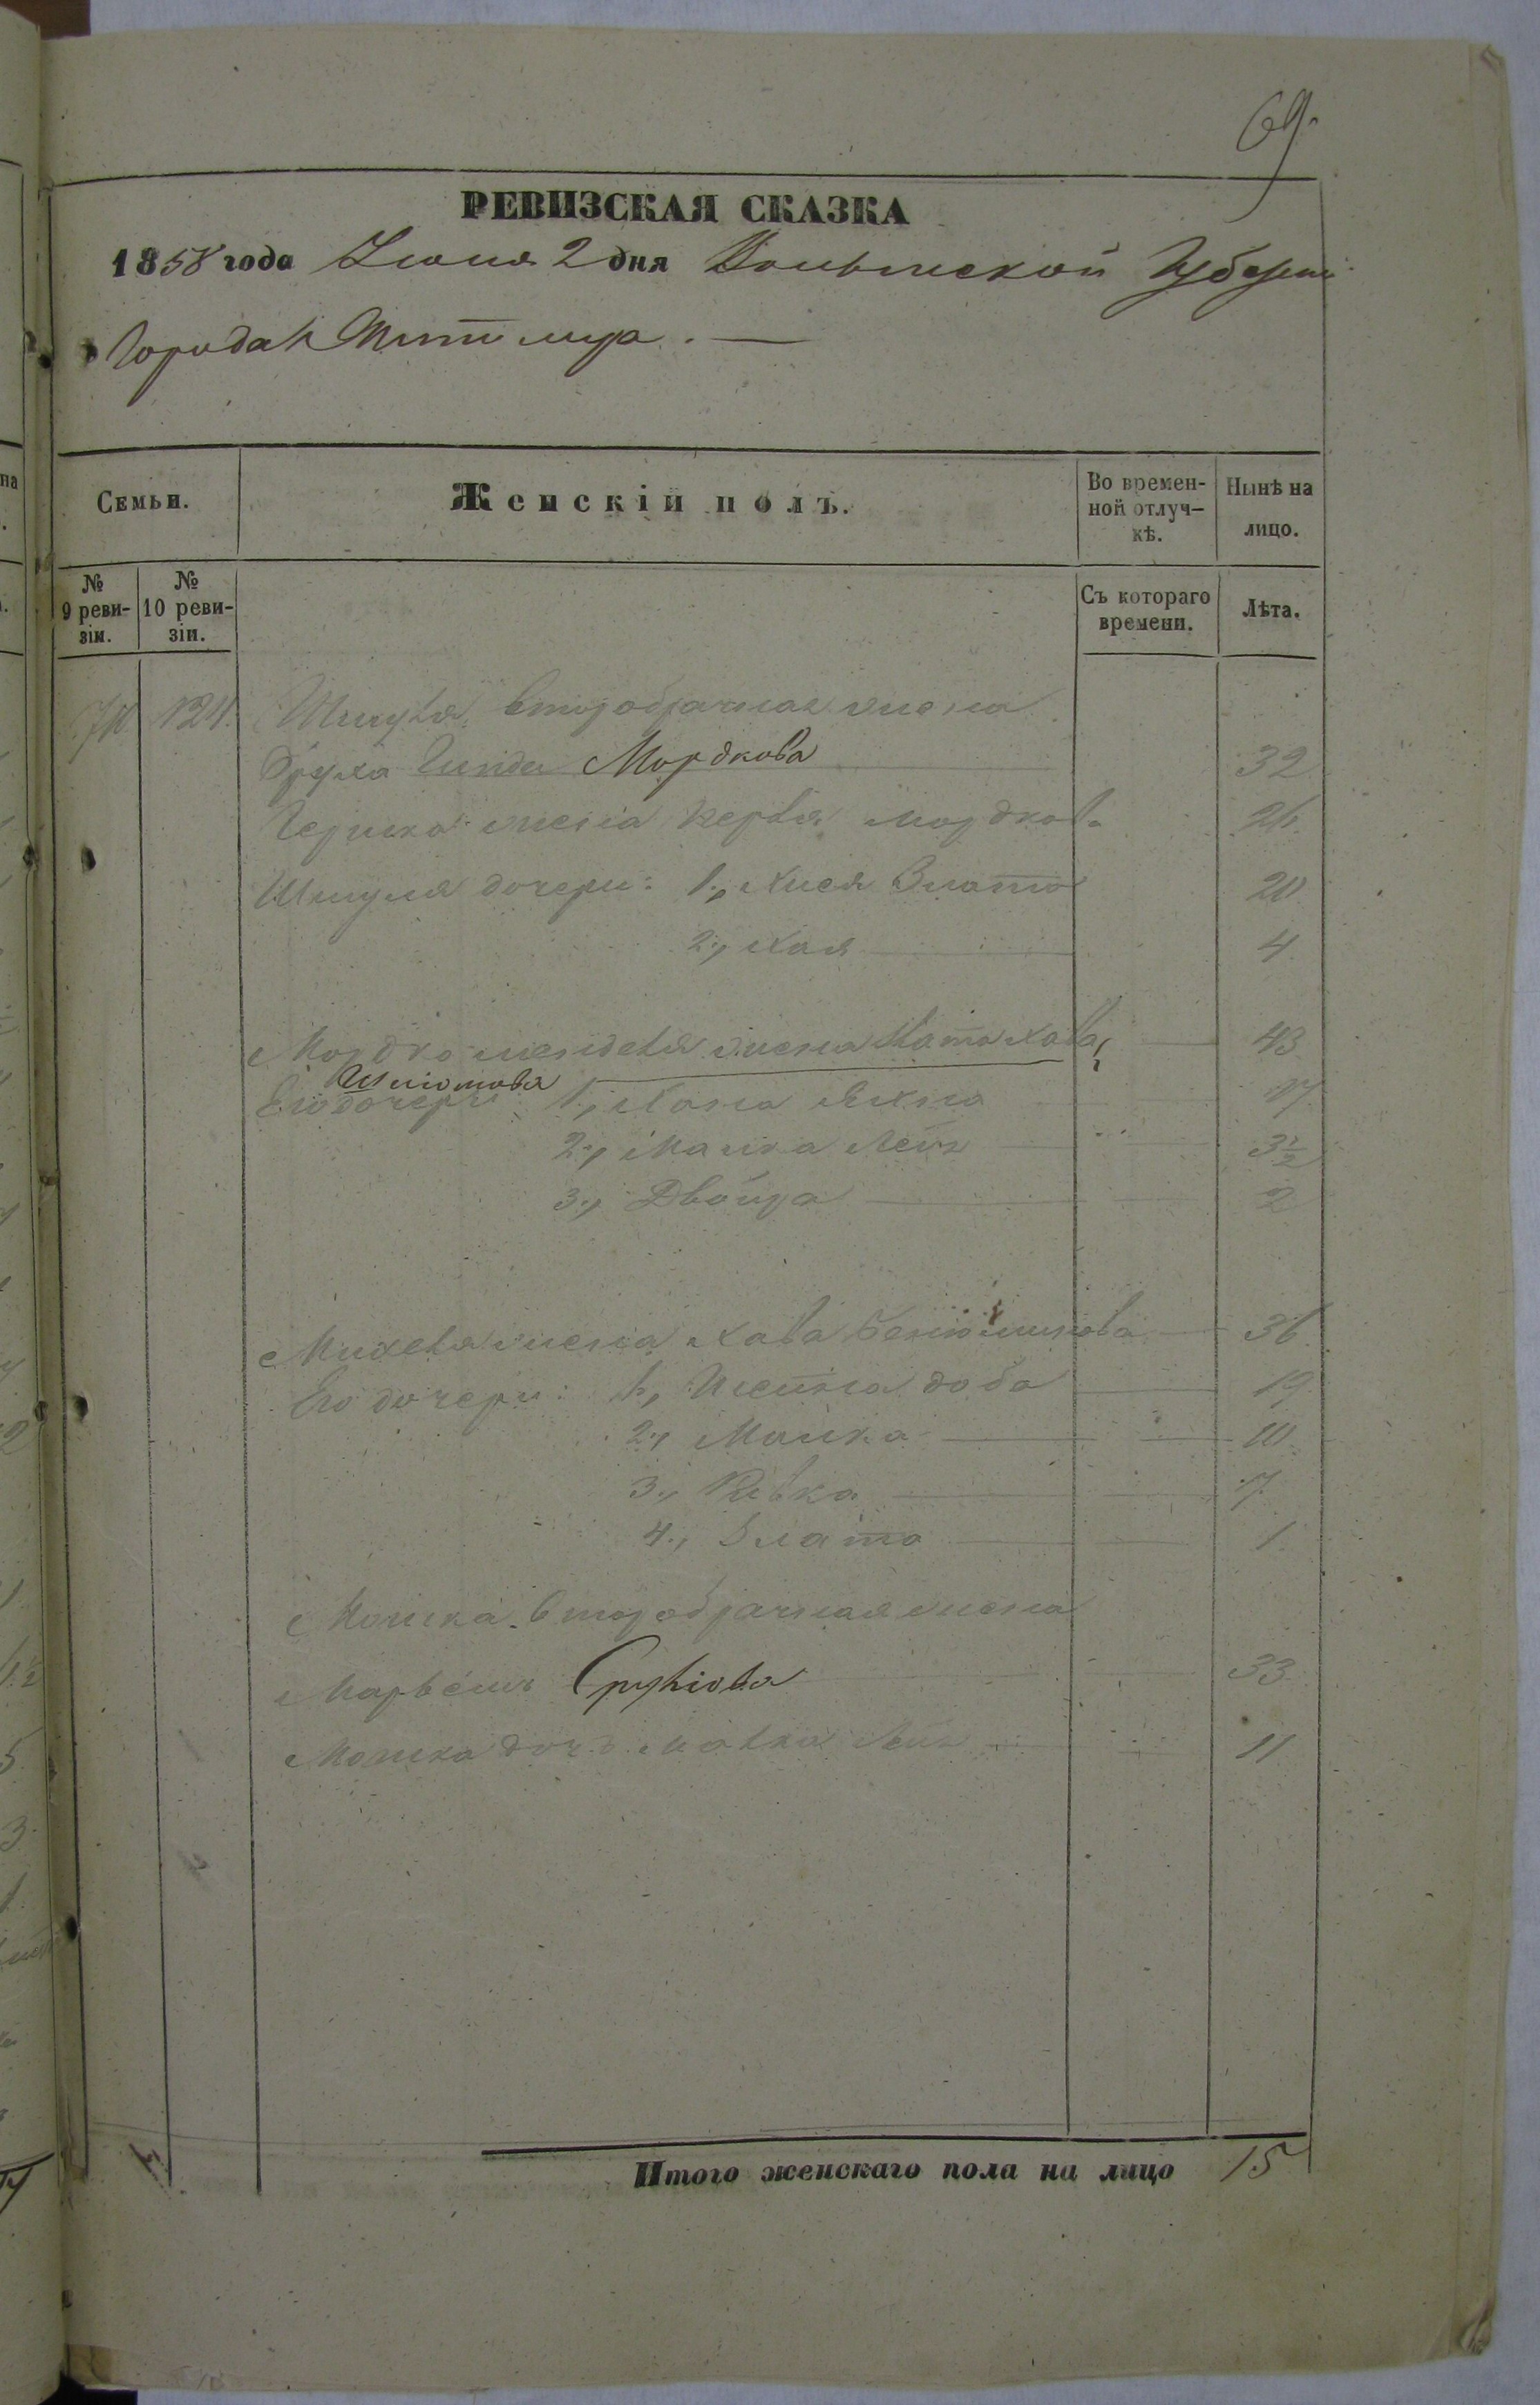 69.
РЕВИЗСКАЯ СКАЗКА
1858 года Іюня 2 дня Волынской Губерніи
Города Житомира. —
Семьи.
Женскій полъ.
Во времен-
ной отлуч-
кѣ.
Нынѣ на
лицо.
№
9 реви-
зіи.
№
10 реви-
зіи.
Съ котораго
времени.
Лѣта.
124. второбрачная жена
Мордкова 32
Гершка жена Мордкова 26.
Шмуля дочери: 1., Хися Злата 20
2., Хая 4.
Мордко жена Хава 43
Его дочери 1., Хана 17.
2., Малка Лея 3½
3., Двойра 2
жена Хава 36.
Его дочери: 1., Шейна доба 19.
2., Малка 10.
3., Ривка 7.
4., Злата 1.
Мошка второбрачная жена
Сруліова 33.
Мошка дочь 11
Итого женскаго пола на лицо 15